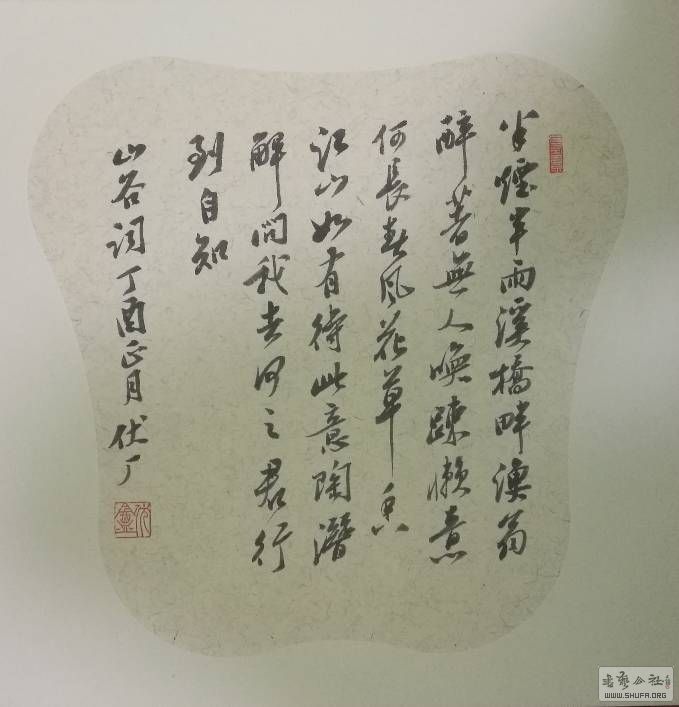 半煙半雨溪橋畔漁翁
醉著無人喚踈懶意
何長春風花草香
江山如有待此意陶潛
解問我去何之君行
到自知
山谷詞丁酉正月伏丁
书艺公社
WWW.SHUFA.ORG